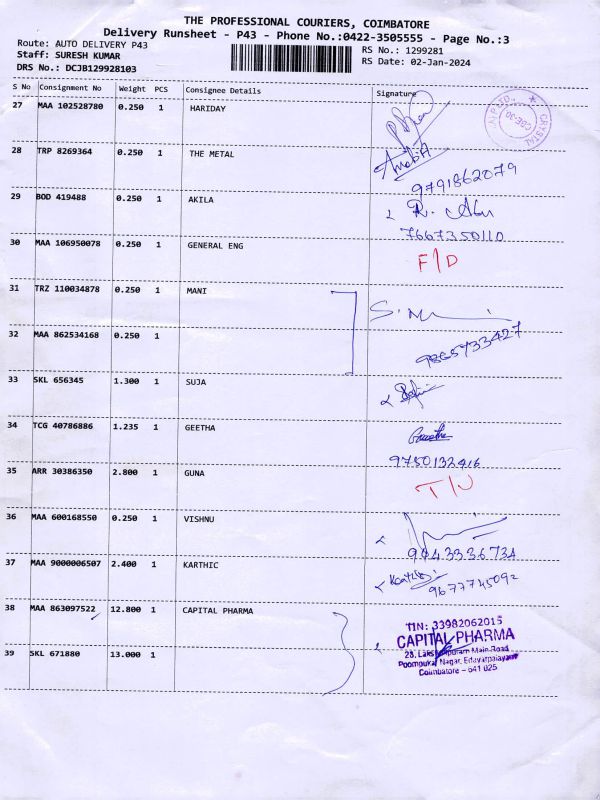 THE PROFESSIONAL COURIERS, COIMBATORE
Delivery Runsheet - P43 - Phone No.:0422-3505555 - Page No.:3
Route: AUTO DELIVERY P43
RS No.: 1299281
Staff: SURESH KUMAR
RS Date: 02-Jan-2024
DRS No.: DCJB129928103
S No Consignment No Weight PCS Consignee Details Signature
27 MAA 102528780 0.250 1 HARIDAY
CRYSTAL
CBE-30
28 TRP 8269364 0.250 1 THE METAL
9791862079
29 BOD 419488 0.250 1 AKILA
R.
7667350110
30 MAA 106950078 0.250 1 GENERAL ENG
F/D
31 TRZ 110034878 0.250 1 MANI
32 MAA 862534168 0.250 1
9865733427
33 SKL 656345 1.300 1 SUJA
34 TCG 40786886 1.235 1 GEETHA
9750132416
35 ARR 30386350 2.800 1 GUNA
36 MAA 600168550 0.250 1 VISHNU
9043336734
37 MAA 9000006507 2.400 1 KARTHIC
9677745092
38 MAA 863097522 12.800 1 CAPITAL PHARMA
TIN: 33982062015
CAPITAL PHARMA
Main Road
Nagar, Edayarpalayam
Coimbatore - 641 025
39 SKL 671880 13.000 1